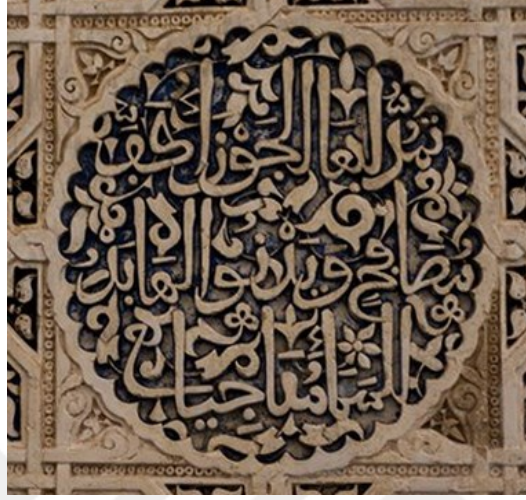 تمد لها الجوزاء كف
مصافح ويدنو لها بدر
السماء مناجيا